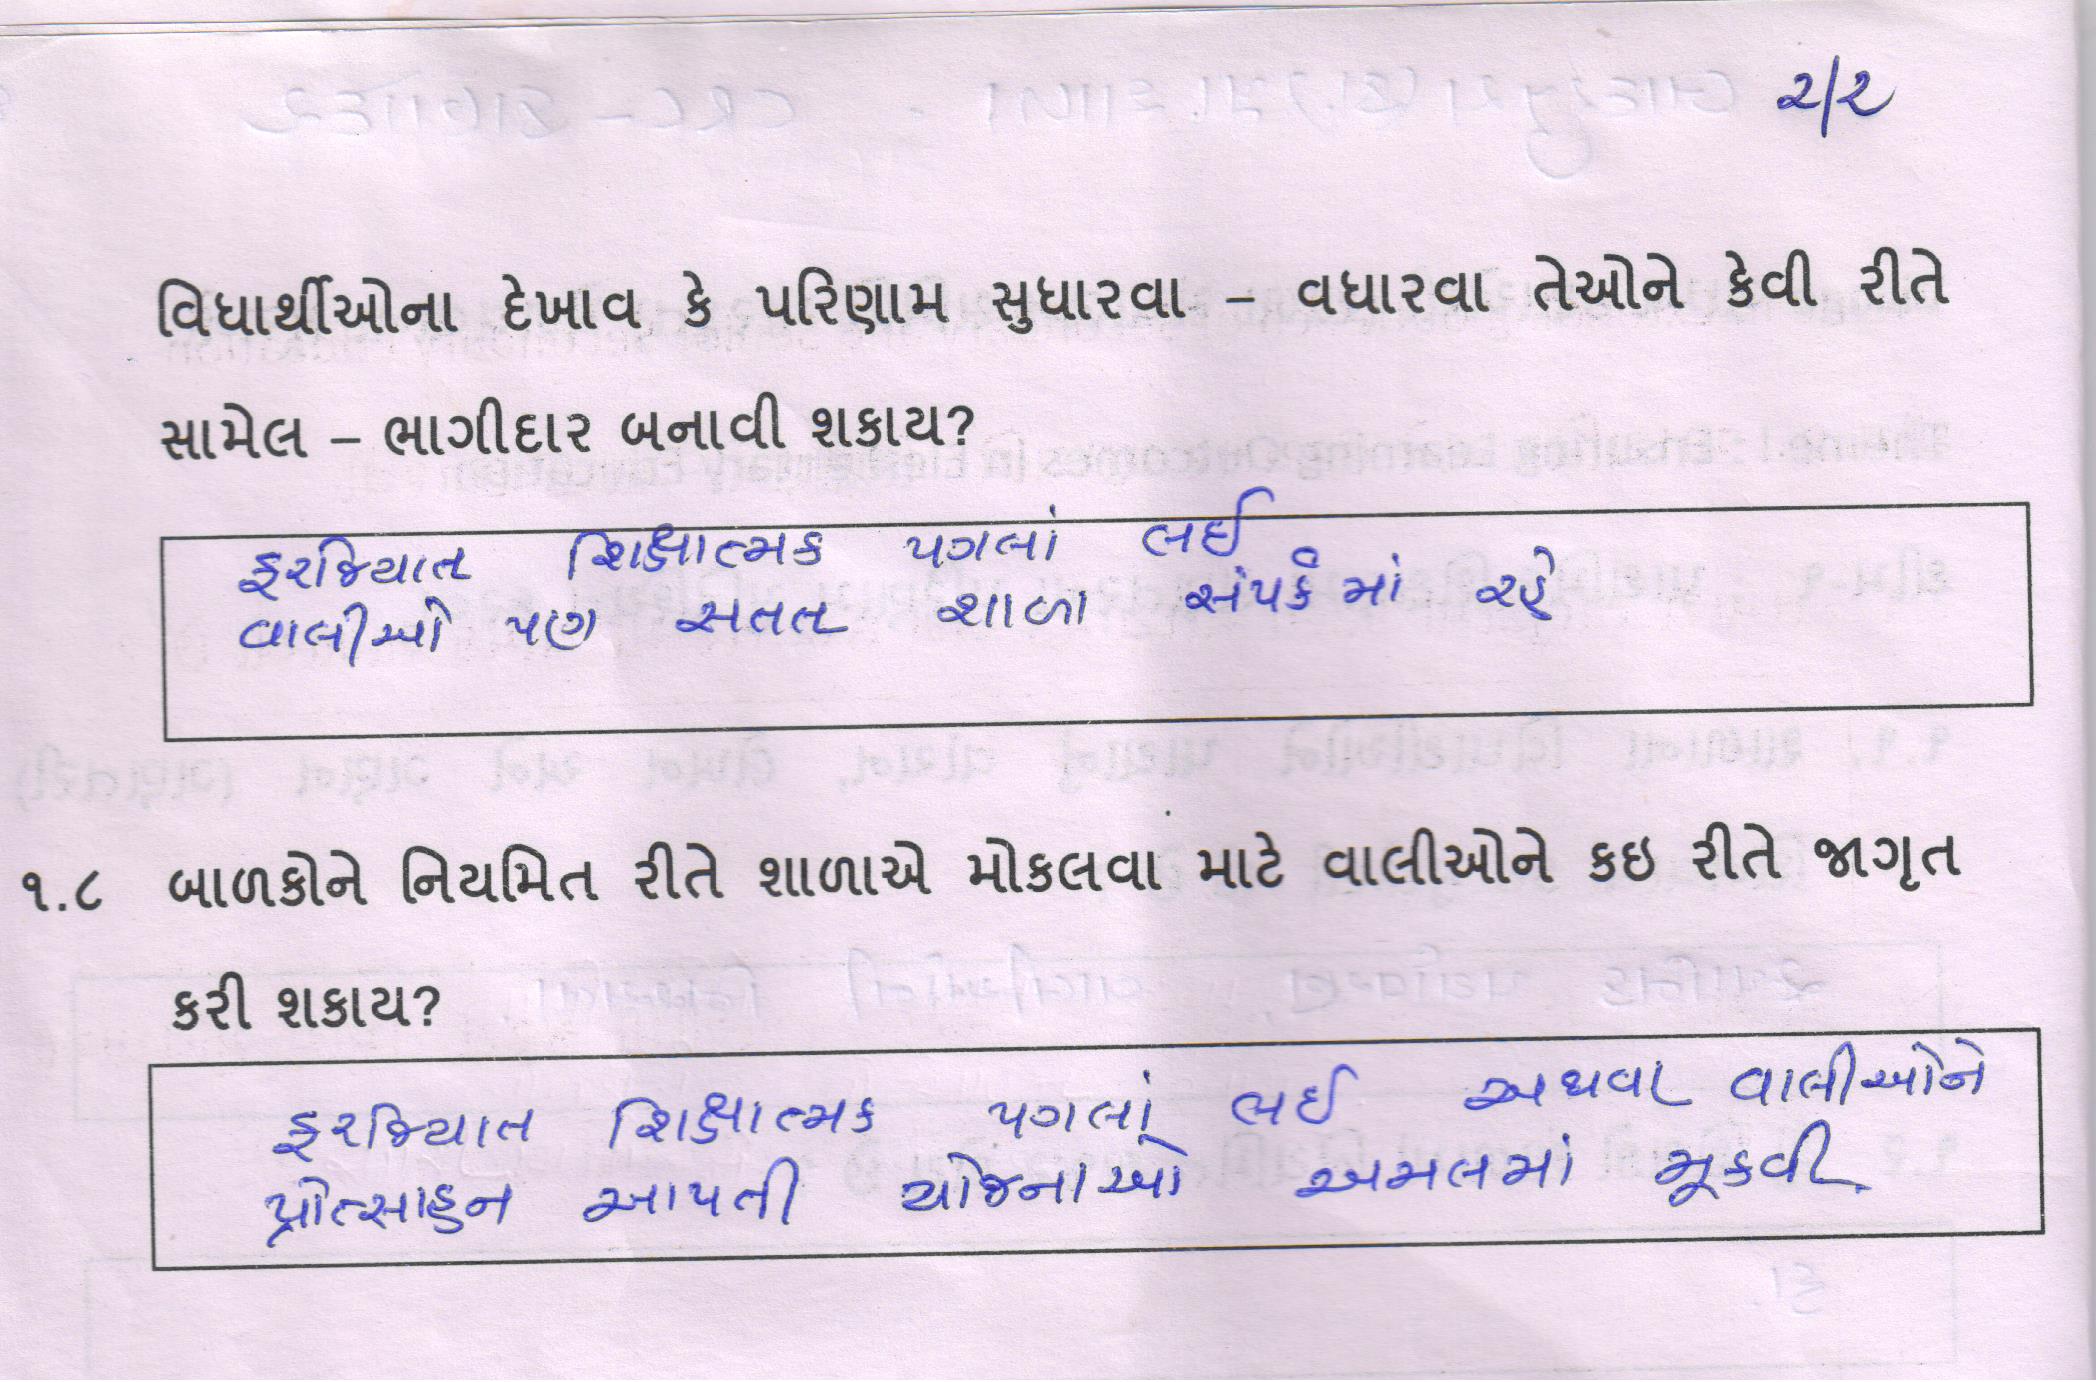 ૨/૨
વિધાર્થીઓના દેખાવ કે પરિણામ સુધારવા – વધારવા તેઓને કેવી રીતે
સામેલ – ભાગીદાર બનાવી શકાય?
ફરજિયાત શિક્ષાત્મક પગલાં લઈ
વાલીઓ પણ સતત શાળા સંપર્કમાં રહે
૧.૮ બાળકોને નિયમિત રીતે શાળાએ મોકલવા માટે વાલીઓને કઇ રીતે જાગૃત
કરી શકાય?
ફરજિયાત શિક્ષાત્મક પગલાં લઈ અથવા વાલીઓને
પ્રોત્સાહન આપતી યોજનાઓ અમલમાં મૂકવી.